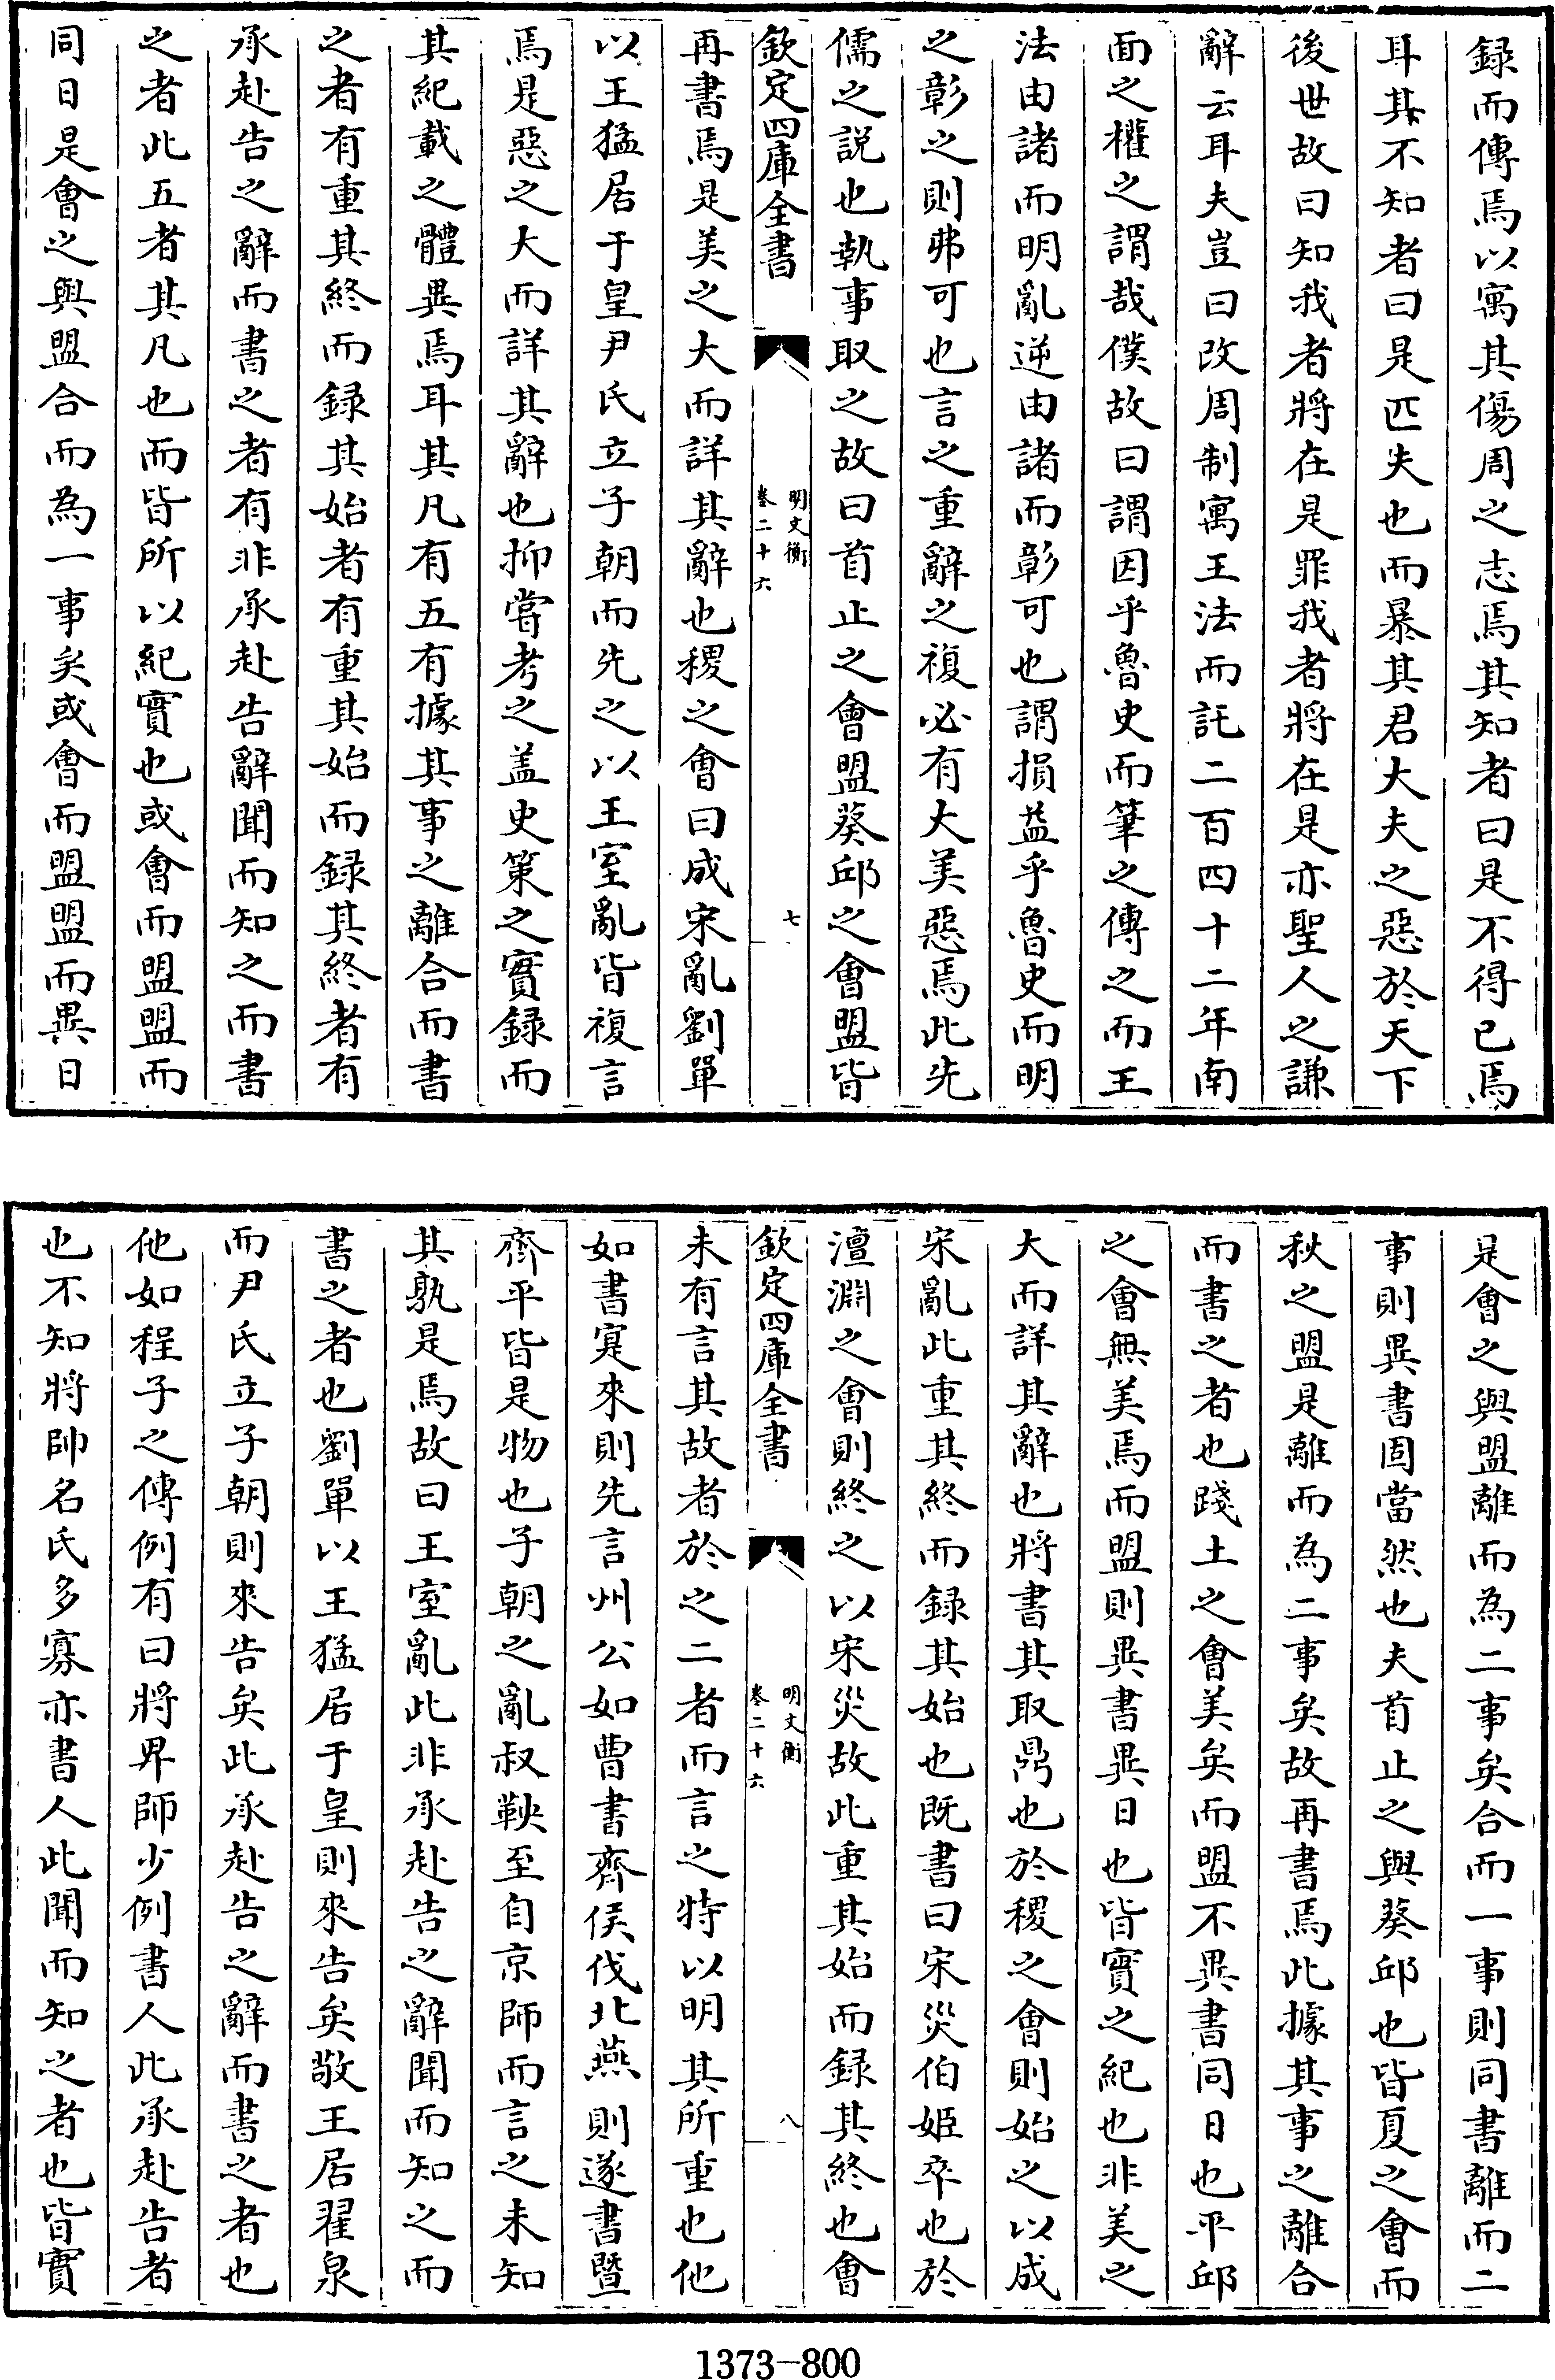 録而傳焉以寓其傷周之志焉其知者曰是不得已焉
耳其不知者曰是匹夫也而暴其君大夫之惡於天下
後世故曰知我者將在是罪我者將在是亦聖人之謙
辭云耳夫豈曰改周制寓王法而託二百四十二年南
面之權之謂哉僕故曰謂因乎魯史而筆之傳之而王
法由諸而明亂逆由諸而彰可也謂損益乎魯史而明
之彰之則弗可也言之重辭之複必有大美惡焉此先
儒之説也執事取之故曰首止之會盟葵邱之會盟皆
欽定四庫全書
明文衡
卷二十六
七
再書焉是美之大而詳其辭也稷之會曰成宋亂劉單
以王猛居于皇尹氏立子朝而先之以王室亂皆複言
焉是惡之大而詳其辭也抑嘗考之盖史策之實録而
其紀載之體異焉耳其凡有五有據其事之離合而書
之者有重其終而録其始者有重其始而録其終者有
承赴告之辭而書之者有非承赴告辭聞而知之而書
之者此五者其凡也而皆所以紀實也或會而盟盟而
同日是會之與盟合而為一事矣或會而盟盟而異日
是會之與盟離而為二事矣合而一事則同書離而二
事則異書固當然也夫首止之與葵邱也皆夏之會而
秋之盟是離而為二事矣故再書焉此據其事之離合
而書之者也踐土之會美矣而盟不異書同日也平邱
之會無美焉而盟則異書異日也皆實之紀也非美之
大而詳其辭也將書其取鼎也於稷之會則始之以成
宋亂此重其終而録其始也既書曰宋災伯姬卒也於
澶淵之會則終之以宋災故此重其始而録其終也會
欽定四庫全書
明文衡
卷二十六
八
未有言其故者於之二者而言之特以明其所重也他
如書寔來則先言州公如曹書齊侯伐北燕則遂書暨
齊平皆是物也子朝之亂叔鞅至自京師而言之未知
其孰是焉故曰王室亂此非承赴告之辭聞而知之而
書之者也劉單以王猛居于皇則來告矣敬王居翟泉
而尹氏立子朝則來告矣此承赴告之辭而書之者也
他如程子之傳例有曰將畀師少例書人此承赴告者
也不知將帥名氏多寡亦書人此聞而知之者也皆實
1373-800